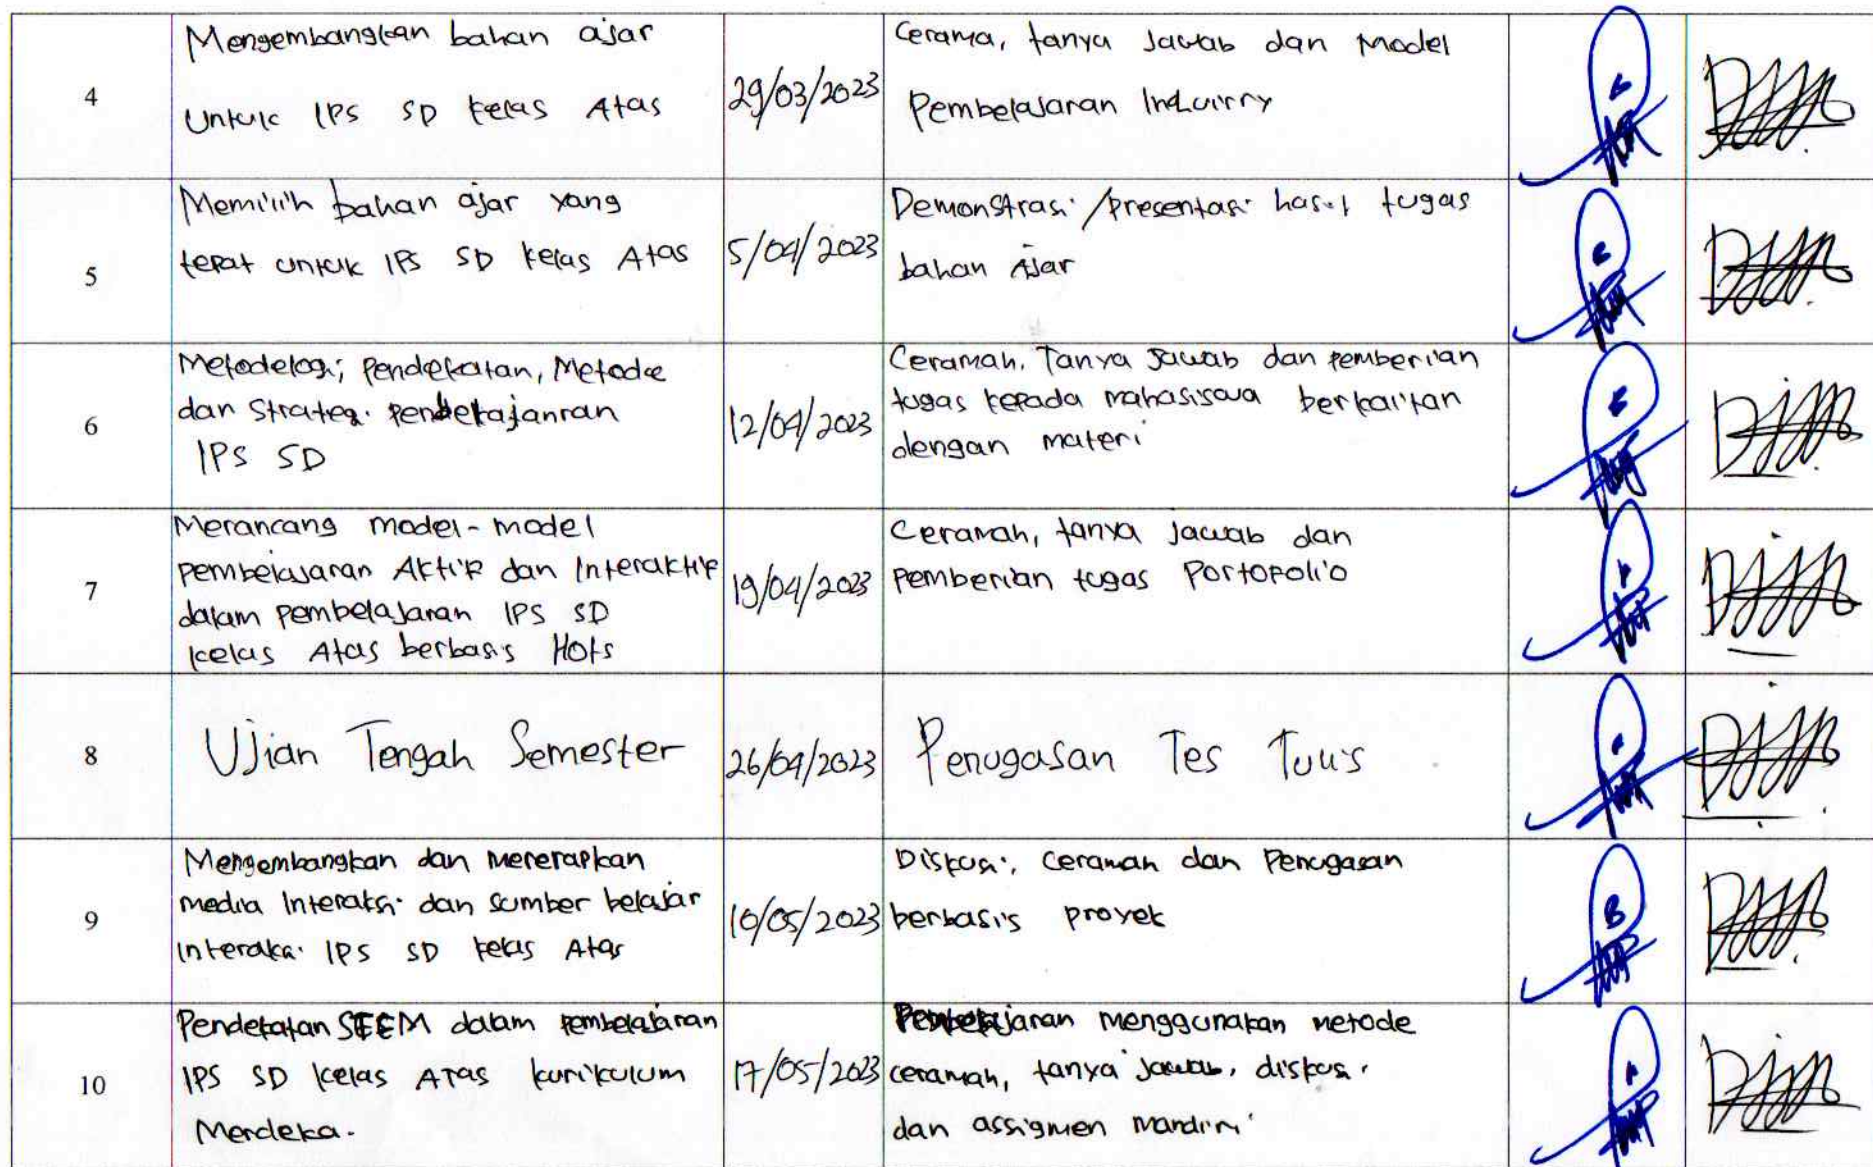 4
Mengembangkan bahan ajar
untuk IPS SD kelas Atas
29/03/2023
Cerama, tanya Jawab dan Model
Pembelajaran Inquirry
5
Memilih bahan ajar yang
tepat untuk IPS SD kelas Atas
5/04/2023
Demonstrasi/presentasi hasil tugas
bahan Ajar
6
Metodelogi; Pendekatan, Metode
dan Strategi pembelajanran
IPS SD
12/04/2023
Ceramah, Tanya Jawab dan pemberian
tugas kepada mahasiswa berkaitan
dengan materi
7
Merancang model-model
pembelajaran Aktif dan Interaktif
dalam pembelajaran IPS SD
kelas Atas berbasis Hots
19/04/2023
Ceramah, tanya Jawab dan
pemberian tugas Portofolio
8
Ujian Tengah Semester
26/04/2023
Penugasan Tes Tulis
9
Mengembangkan dan menerapkan
media Interaksi dan sumber belajar
Interaksi IPS SD kelas Atas
10/05/2023
Diskusi, ceramah dan Penugasan
berbasis proyek
10
Pendekatan STEM dalam pembelajaran
IPS SD kelas Atas kurikulum
Merdeka.
17/05/2023
Pembelajaran menggunakan metode
ceramah, tanya jawab, diskusi
dan assigmen mandiri